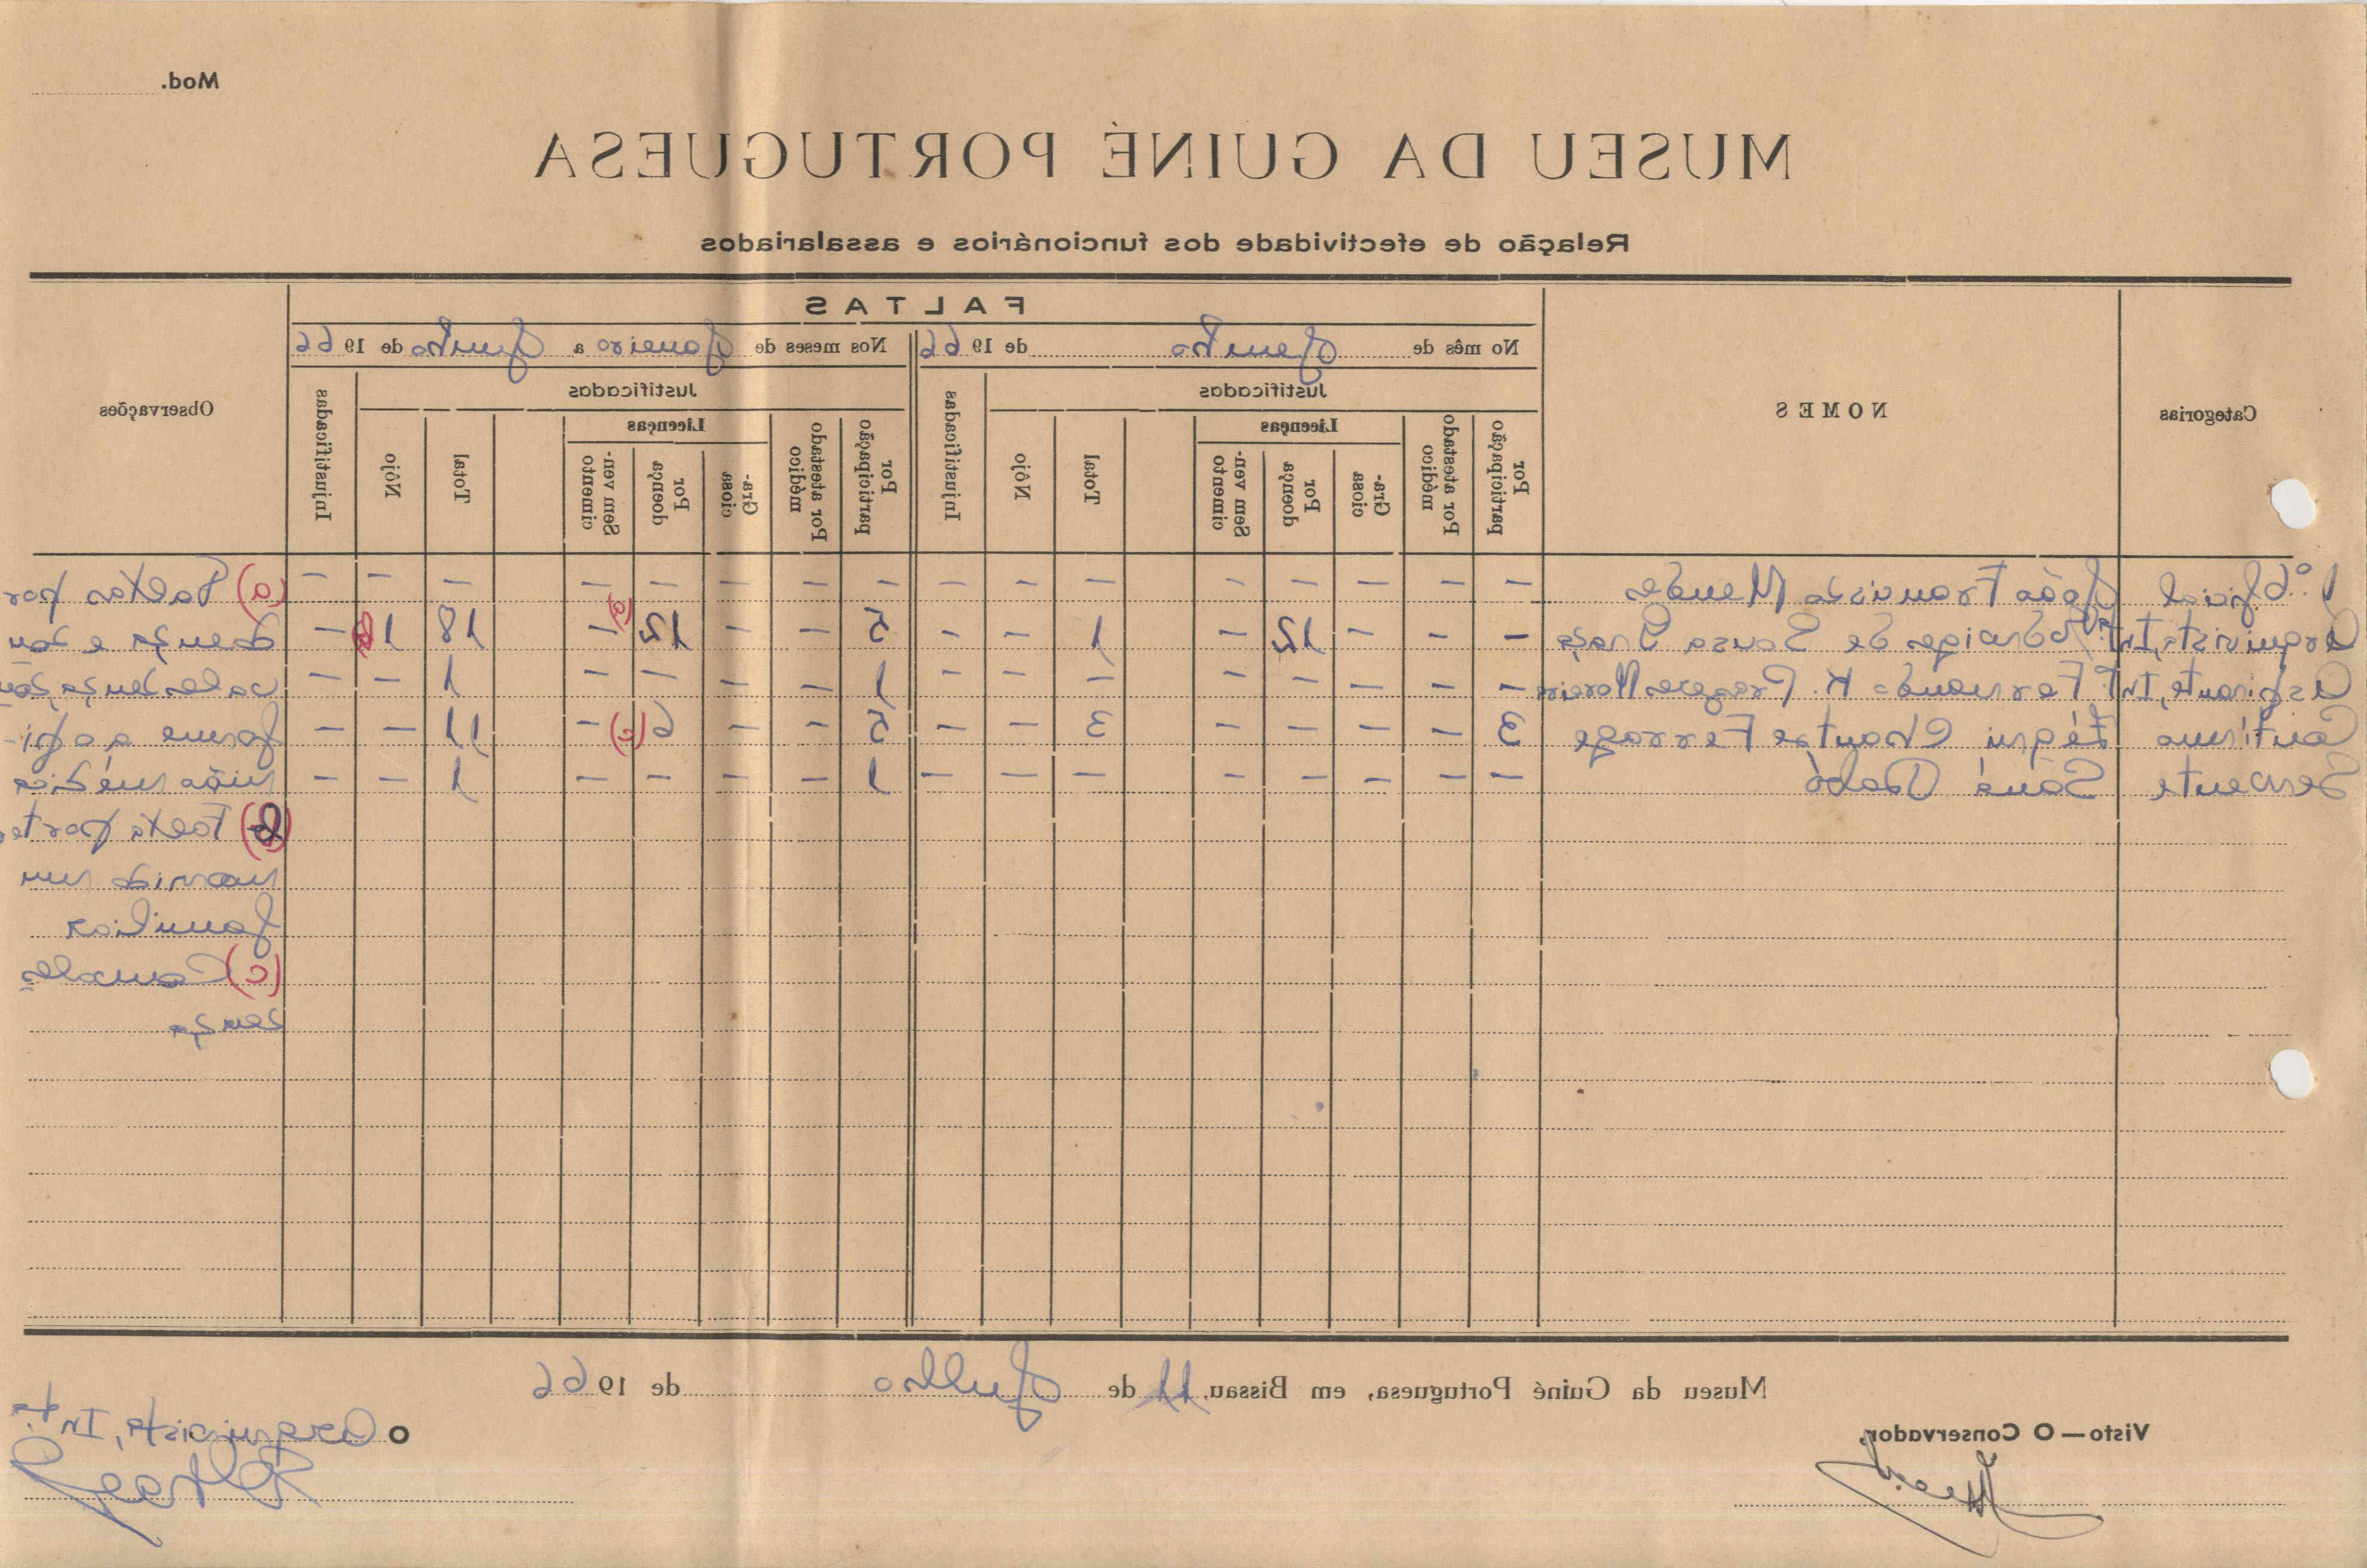 Mod.
MUSEU DA GUINÉ PORTUGUESA
Relação de efectividade dos funcionários e assalariados
Categorias
NOMES
FALTAS
Observações
No mês de Junho de 1966
Nos meses de Janeiro a Junho de 1966
Justificadas
Justificadas
Licenças
Licenças
Por participação
Por atestado médico
Graciosa
Por doença
Sem vencimento
Total
Nôjo
Injustificadas
Por participação
Por atestado médico
Graciosa
Por doença
Sem vencimento
Total
Nôjo
Injustificadas
1.º Oficial João Francisco Mendes - - - - - - - - - - - - - - - -
Arquivista, Int.º de Sousa - - - 12 - 1 - - 5 - - 12 (a) - 18 1 (b) -
Aspirante, Int.º Fernando K. Moreira - - - - - - - - 1 - - - - 1 - -
Contínuo Ferrage 3 - - - - 3 - - 5 - - 6 (c) - 11 - -
Servente Saná Baldó - - - - - - - - 1 - - - - 1 - -
(a) Faltas por
doença e
forme a opi-
nião médica
(b) Falta por ter
um
familiar
(c)
Museu da Guiné Portuguesa, em Bissau, 11 de Julho de 1966
Visto—O Conservador,
O Arquivista, Int.º